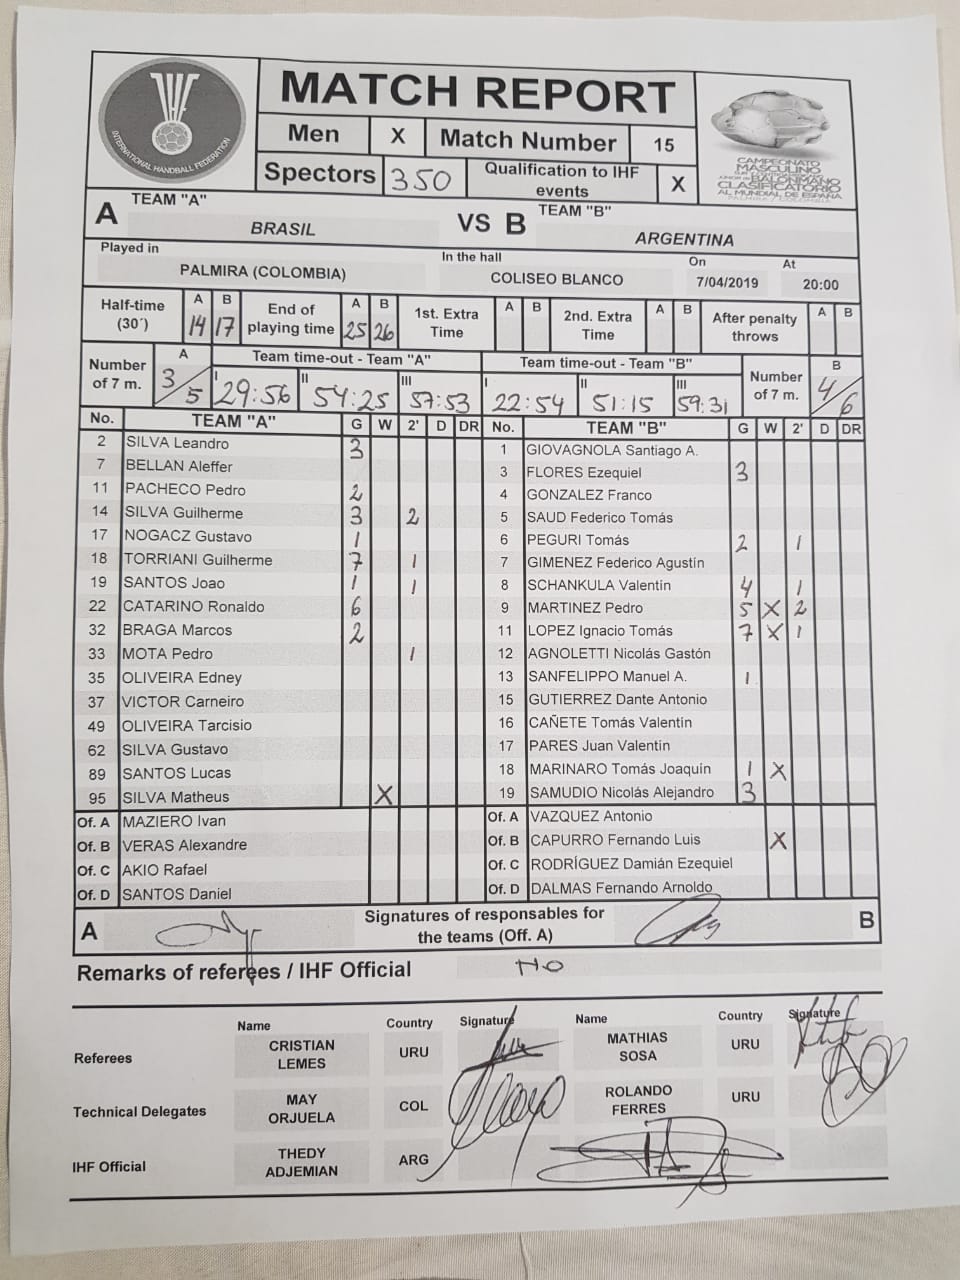 INTERNATIONAL HANDBALL FEDERATION
MATCH REPORT
Men X Match Number 15
Spectors 350 Qualification to IHF events X
CAMPEONATO
MASCULINO
BALONMANO
CLASIFICATORIO
AL MUNDIAL DE ESPAÑA
PALMIRA / COLOMBIA
A TEAM "A" BRASIL VS B TEAM "B" ARGENTINA
Played in PALMIRA (COLOMBIA) In the hall COLISEO BLANCO On 7/04/2019 At 20:00
Half-time (30´) A 14 B 17 End of playing time A 25 B 26 1st. Extra Time A B 2nd. Extra Time A B After penalty throws A B
Number of 7 m. A 3/5 Team time-out - Team "A" I 29:56 II 54:25 III 57:53 Team time-out - Team "B" I 22:54 II 51:15 III 59:31 Number of 7 m. B 4/6
No. TEAM "A" G W 2' D DR No. TEAM "B" G W 2' D DR
2 SILVA Leandro 3 1 GIOVAGNOLA Santiago A.
7 BELLAN Aleffer 3 FLORES Ezequiel 3
11 PACHECO Pedro 2 4 GONZALEZ Franco
14 SILVA Guilherme 3 2 5 SAUD Federico Tomás
17 NOGACZ Gustavo 1 6 PEGURI Tomás 2 1
18 TORRIANI Guilherme 7 1 7 GIMENEZ Federico Agustín
19 SANTOS Joao 1 1 8 SCHANKULA Valentin 4 1
22 CATARINO Ronaldo 6 9 MARTINEZ Pedro 5 X 2
32 BRAGA Marcos 2 11 LOPEZ Ignacio Tomás 7 X 1
33 MOTA Pedro 1 12 AGNOLETTI Nicolás Gastón
35 OLIVEIRA Edney 13 SANFELIPPO Manuel A. 1
37 VICTOR Carneiro 15 GUTIERREZ Dante Antonio
49 OLIVEIRA Tarcisio 16 CAÑETE Tomás Valentín
62 SILVA Gustavo 17 PARES Juan Valentin
89 SANTOS Lucas 18 MARINARO Tomás Joaquín 1 X
95 SILVA Matheus X 19 SAMUDIO Nicolás Alejandro 3
Of. A MAZIERO Ivan Of. A VAZQUEZ Antonio
Of. B VERAS Alexandre Of. B CAPURRO Fernando Luis X
Of. C AKIO Rafael Of. C RODRÍGUEZ Damián Ezequiel
Of. D SANTOS Daniel Of. D DALMAS Fernando Arnoldo
A Signatures of responsables for the teams (Off. A) B
Remarks of referees / IHF Official NO
Name Country Signature Name Country Signature
Referees CRISTIAN LEMES URU MATHIAS SOSA URU
Technical Delegates MAY ORJUELA COL ROLANDO FERRES URU
IHF Official THEDY ADJEMIAN ARG